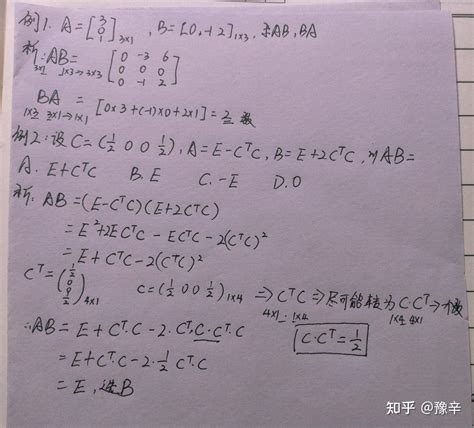 例1. A=[3 0 1]3×1, B=[0,-1 2]1×3, 求AB, BA
析: AB= [0 -3 6
3×1 1×3→3×3 0 0 0
0 -1 2]
BA = [0×3+(-1)×0+2×1]=2 数
1×3 3×1→1×1
例2: 设C=(½ 0 0 ½), A=E-CᵀC, B=E+2CᵀC, 则AB=
A. E+CᵀC B. E C. -E D. 0
析: AB=(E-CᵀC)(E+2CᵀC)
=E²+2ECᵀC-ECᵀC-2(CᵀC)²
=E+CᵀC-2(CᵀC)²
Cᵀ=(½ 0 0 ½)4×1 C=(½ 0 0 ½)1×4 ⇒CᵀC⇒尽可能转为C·Cᵀ→个数
4×1 1×4 1×4 4×1
∴AB=E+Cᵀ·C-2·Cᵀ·C·Cᵀ·C
C·Cᵀ=½
=E+Cᵀ·C-2·½Cᵀ·C
=E, 选B
知乎 @豫辛